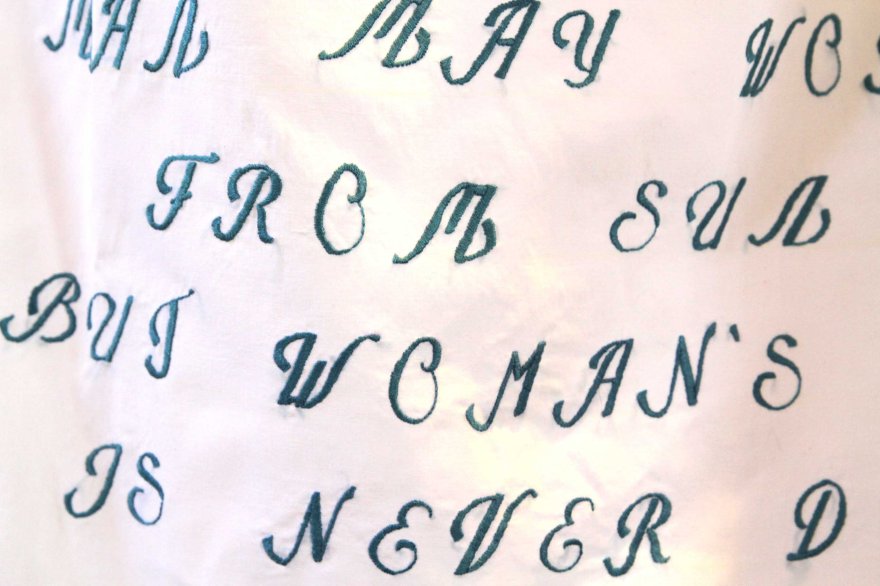 MAN MAY WO
FROM SUN
BUT WOMAN'S
IS NEVER D